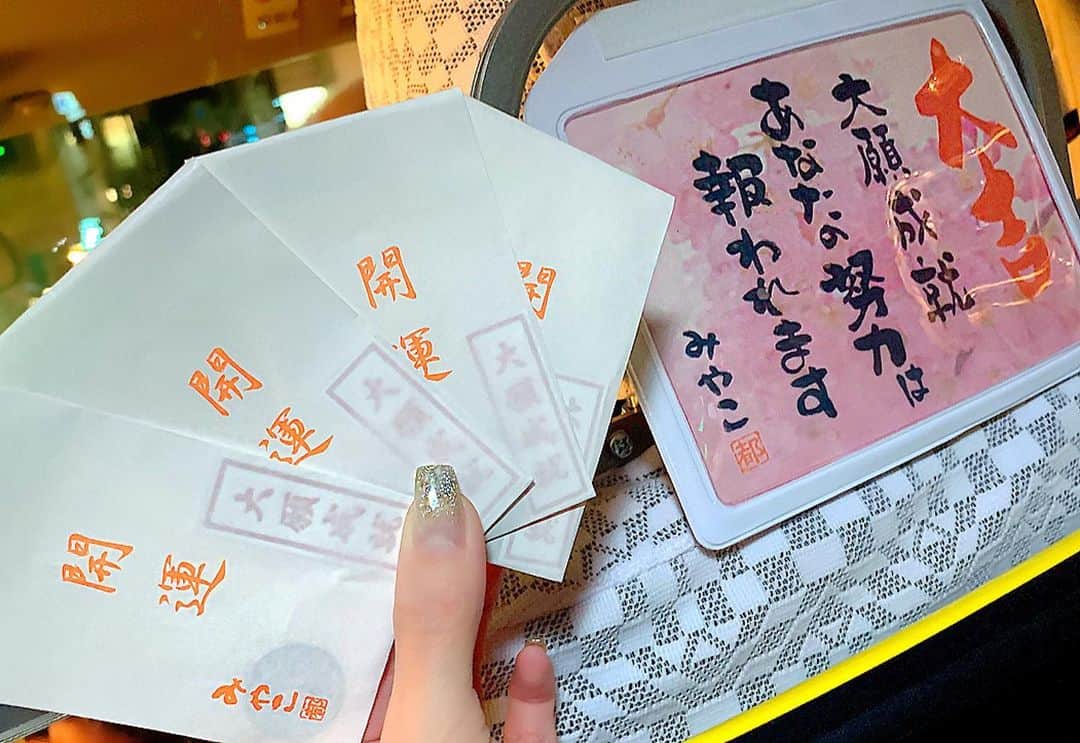 大吉
大願成就
あなたの努力は
報われます
みやこ
都
開運
大願成就
みやこ
都
開運
大願
開運
大願成就
開